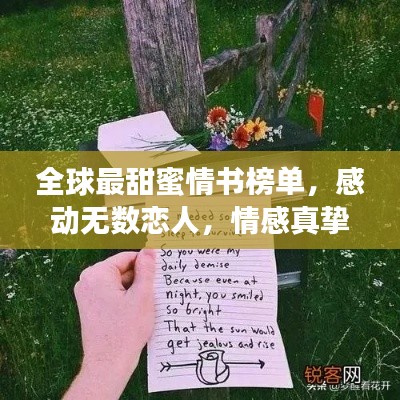 全球最甜蜜情书榜单，感
动无数恋人，情感真挚
So you were my
daily demise
Because even at
night, you smiled
So bright
That the sun would
get jealous and rise
锐客网